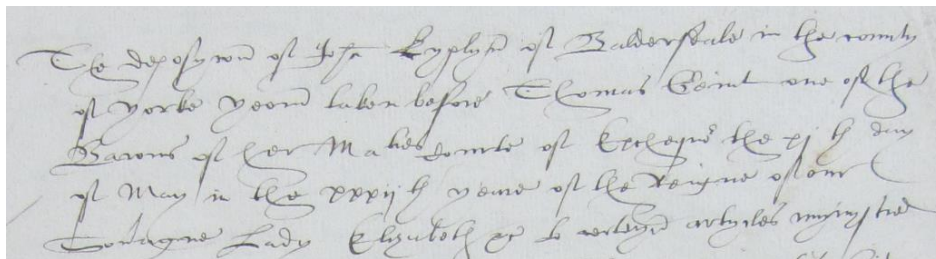 The deposycon of John Kyplyn of Balderseale in the county
of yorke yeom taken before Thomas Gent one of the
Barons of her Maties Courte of Exchequer the xj th day
of May in the xxxij th yeare of the Reigne of our
Soveragne Lady Elizabeth &c to certeyn artycles mynystred